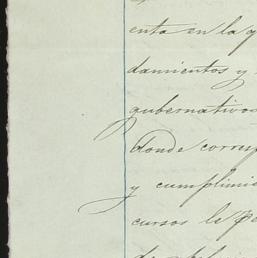 enta en la q
damientos y
gubernativos
donde corresp
y cumplimie
cursos le pe